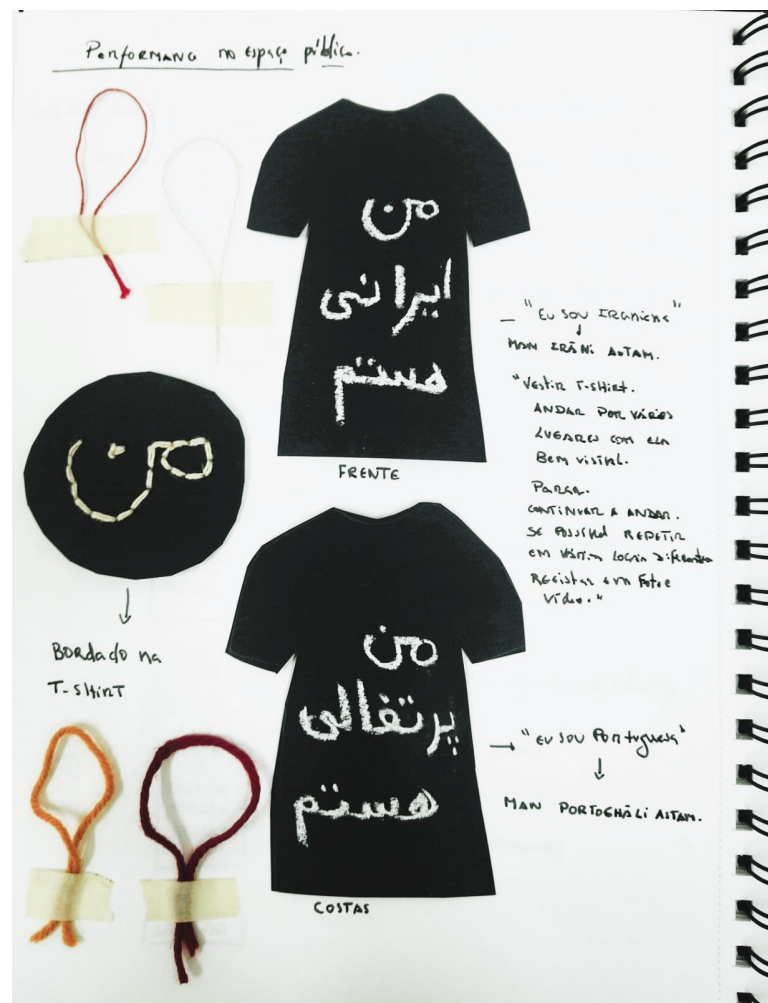 Performance no espaço público.
من
ایرانی
هستم
FRENTE
"Eu sou IRANIANA"
MAN IRĀNi ASTAM.
"Vestir T-SHIRT.
ANDAR POR VÁRIOS
LUGARES COM ELA
Bem visível.
Parar.
CONTINUAR A ANDAR.
SE POSSÍVEL REPETIR
EM VÁRIOS LOCAIS DIFERENTES
Registar em Foto e
Vídeo."
من
BORDADO na
T-SHIRT
من
پرتغالی
هستم
"EU SOU Portuguesa"
MAN PORTOGHĀLi ASTAM.
COSTAS